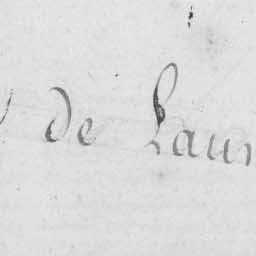 de Laur